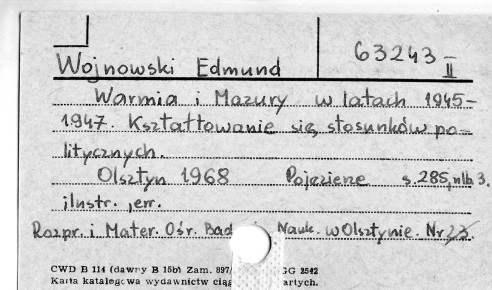 63243 II
Wojnowski Edmund
Warmia i Mazury w latach 1945-
1947. Kształtowanie się stosunków po-
litycznych.
Olsztyn 1968 Pojezierze s. 285, nlb 3.
ilustr., err.
Rozpr. i Mater. Ośr. Bad Nauk. w Olsztynie. Nr 23
CWD B 114 (dawny B 15b) Zam. 897/ GG 2542
Karta katalogowa wydawnictw cią artych.